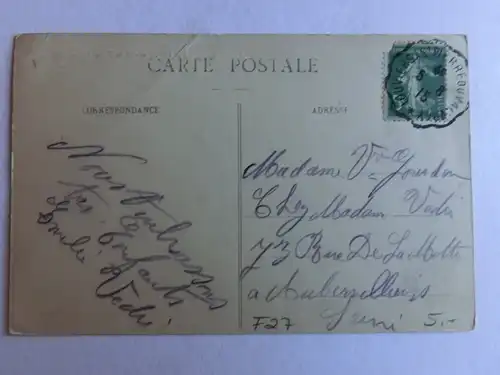 CARTE POSTALE
CORRESPONDANCE
ADRESSE
Nous Vembrassons
tes Enfants
Emile Vedi.
Madame Vve Jourdon
Chez Madam Vedi
73 Rue De La Motte
a Auberzelliers
Seine
F27
5.-